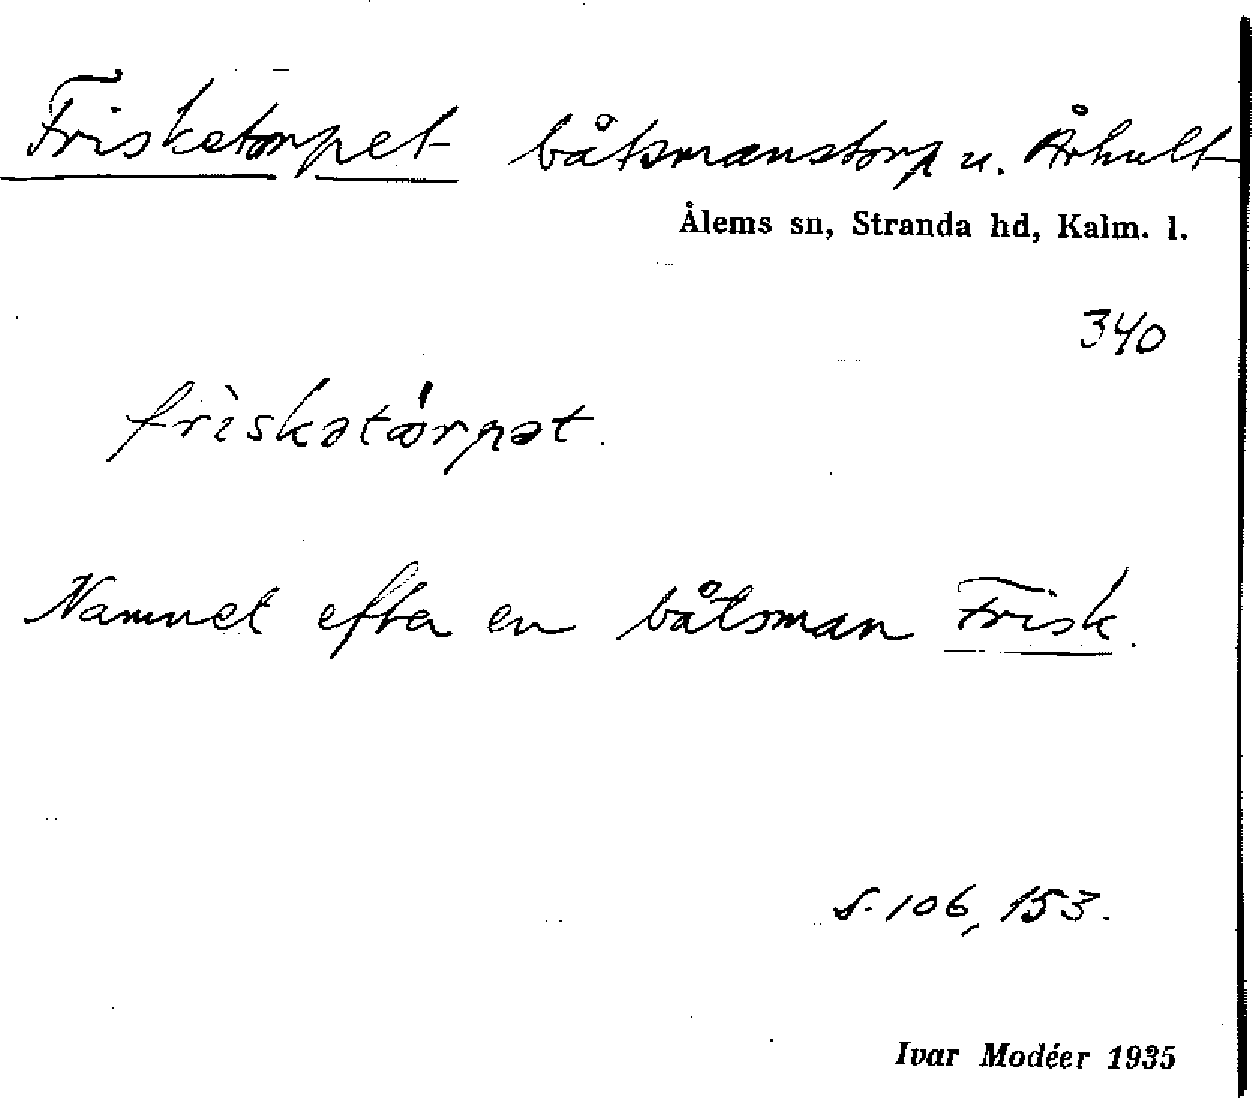 Frisketorpet båtsmanstorp u. Århult
Ålems sn, Stranda hd, Kalm. l.
340
frìskətórpət.
Namnet efter en båtsman Frisk.
S. 106, 153.
Ivar Modéer 1935